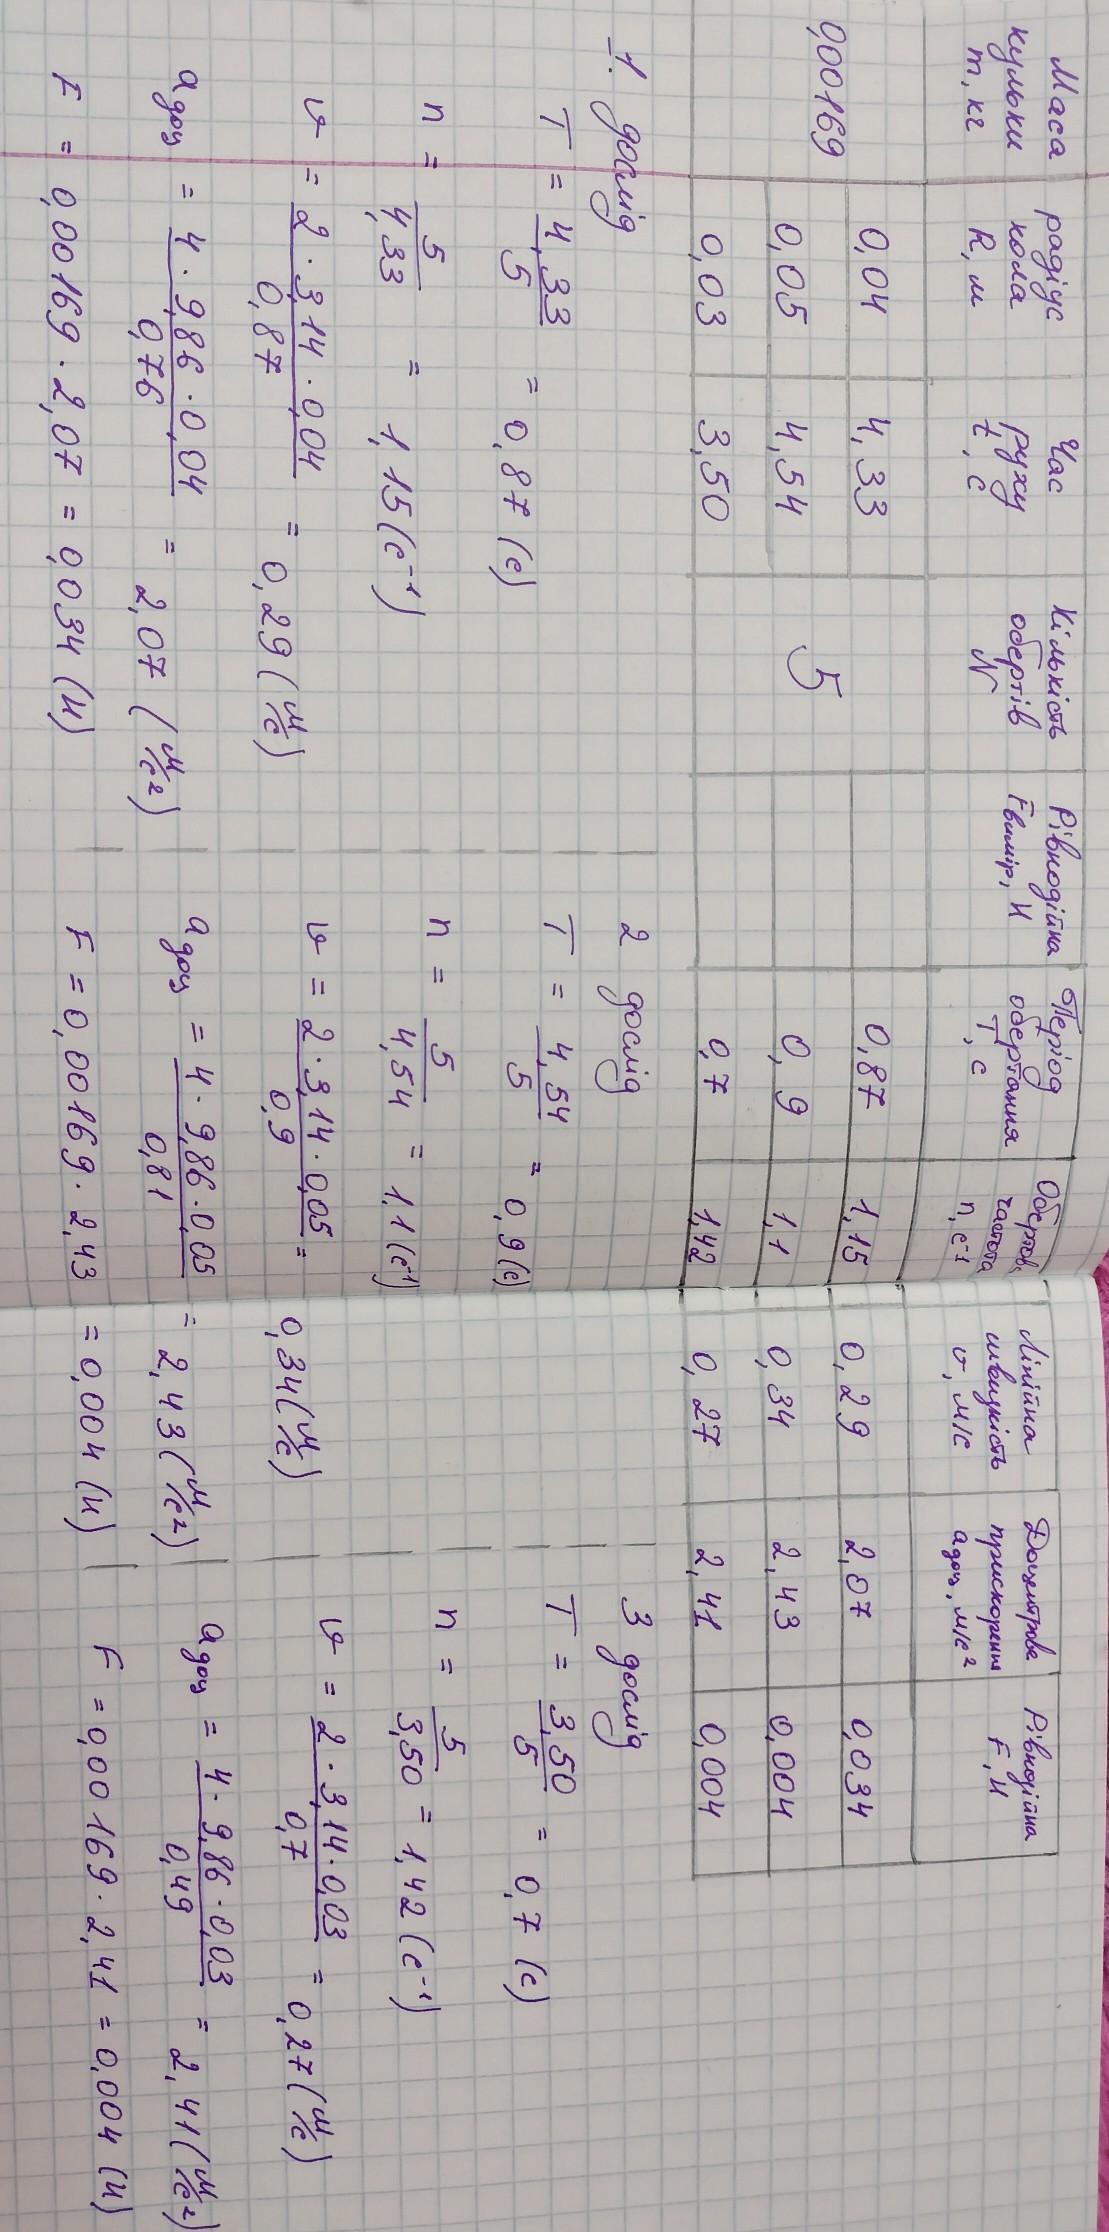 Маса кульки m, кг
радіус кола R, м
Час руху t, с
Кількість обертів N
Рівнодійна Fвимір, Н
Період обертання T, с
Обертов. частота n, с⁻¹
Лінійна швидкість υ, м/с
Доцентрове прискорення aдоц, м/с²
Рівнодійна F, Н
0,04 4,33 0,87 1,15 0,29 2,07 0,034
0,00169 0,05 4,54 5 0,9 1,1 0,34 2,43 0,004
0,03 3,50 0,7 1,42 0,27 2,41 0,004
1. дослід
T = 4,33/5 = 0,87 (с)
n = 5/4,33 = 1,15 (с⁻¹)
υ = 2 · 3,14 · 0,04/0,87 = 0,29 (м/с)
aдоц = 4 · 9,86 · 0,04/0,76 = 2,07 (м/с²)
F = 0,00169 · 2,07 = 0,034 (н)
2 дослід
T = 4,54/5 = 0,9 (с)
n = 5/4,54 = 1,1 (с⁻¹)
υ = 2 · 3,14 · 0,05/0,9 = 0,34 (м/с)
aдоц = 4 · 9,86 · 0,05/0,81 = 2,43 (м/с²)
F = 0,00169 · 2,43 = 0,004 (н)
3 дослід
T = 3,50/5 = 0,7 (с)
n = 5/3,50 = 1,42 (с⁻¹)
υ = 2 · 3,14 · 0,03/0,7 = 0,27 (м/с)
aдоц = 4 · 9,86 · 0,03/0,49 = 2,41 (м/с²)
F = 0,00169 · 2,41 = 0,004 (н)